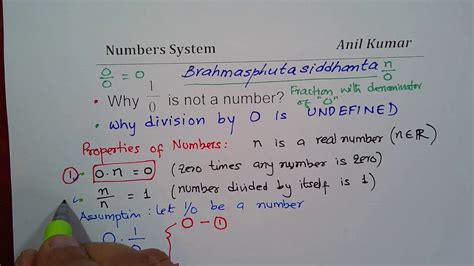 Numbers System Anil Kumar
0/0 = 0 Brahmasphutasiddhanta n/0
• Why 1/0 is not a number? Fraction with denominator of "0"
• Why division by 0 is UNDEFINED
Properties of Numbers: n is a real number (n∈R)
① 0·n = 0 (zero times any number is zero)
n/n = 1 (number divided by itself is 1)
Assumption: Let 1/0 be a number
0·1/0 { 0 – ①